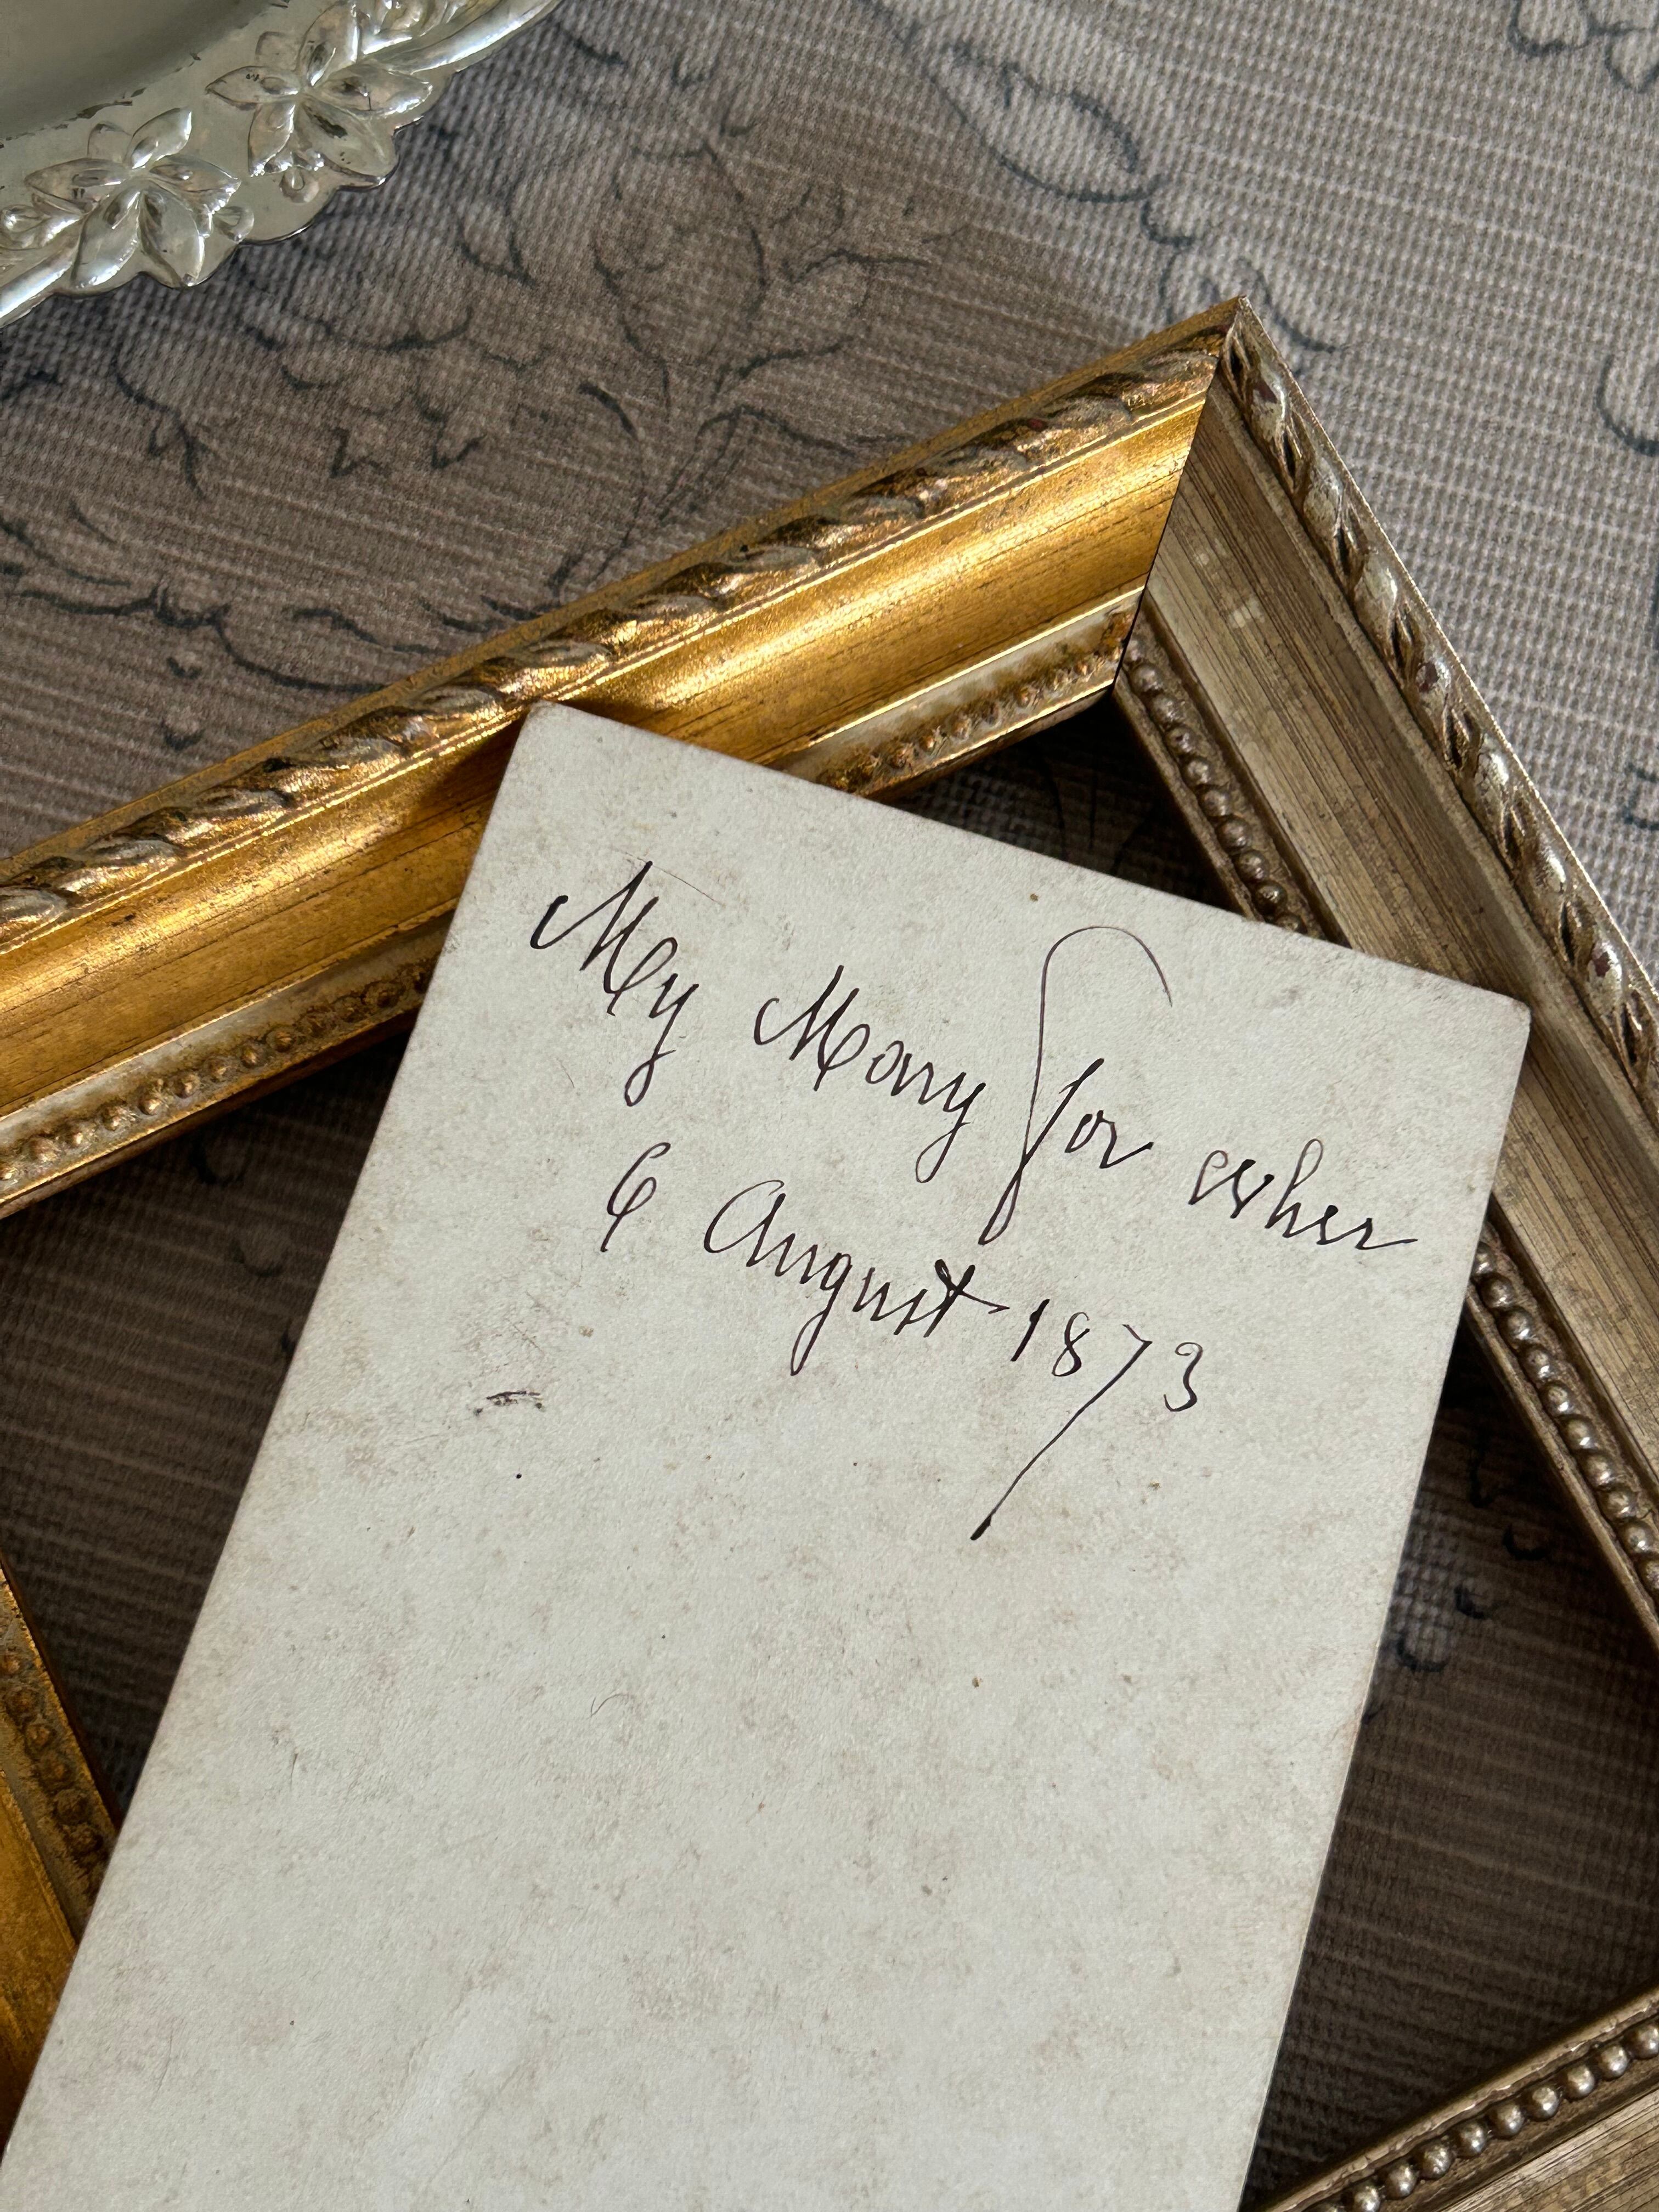 My Mary for
6 August 1873